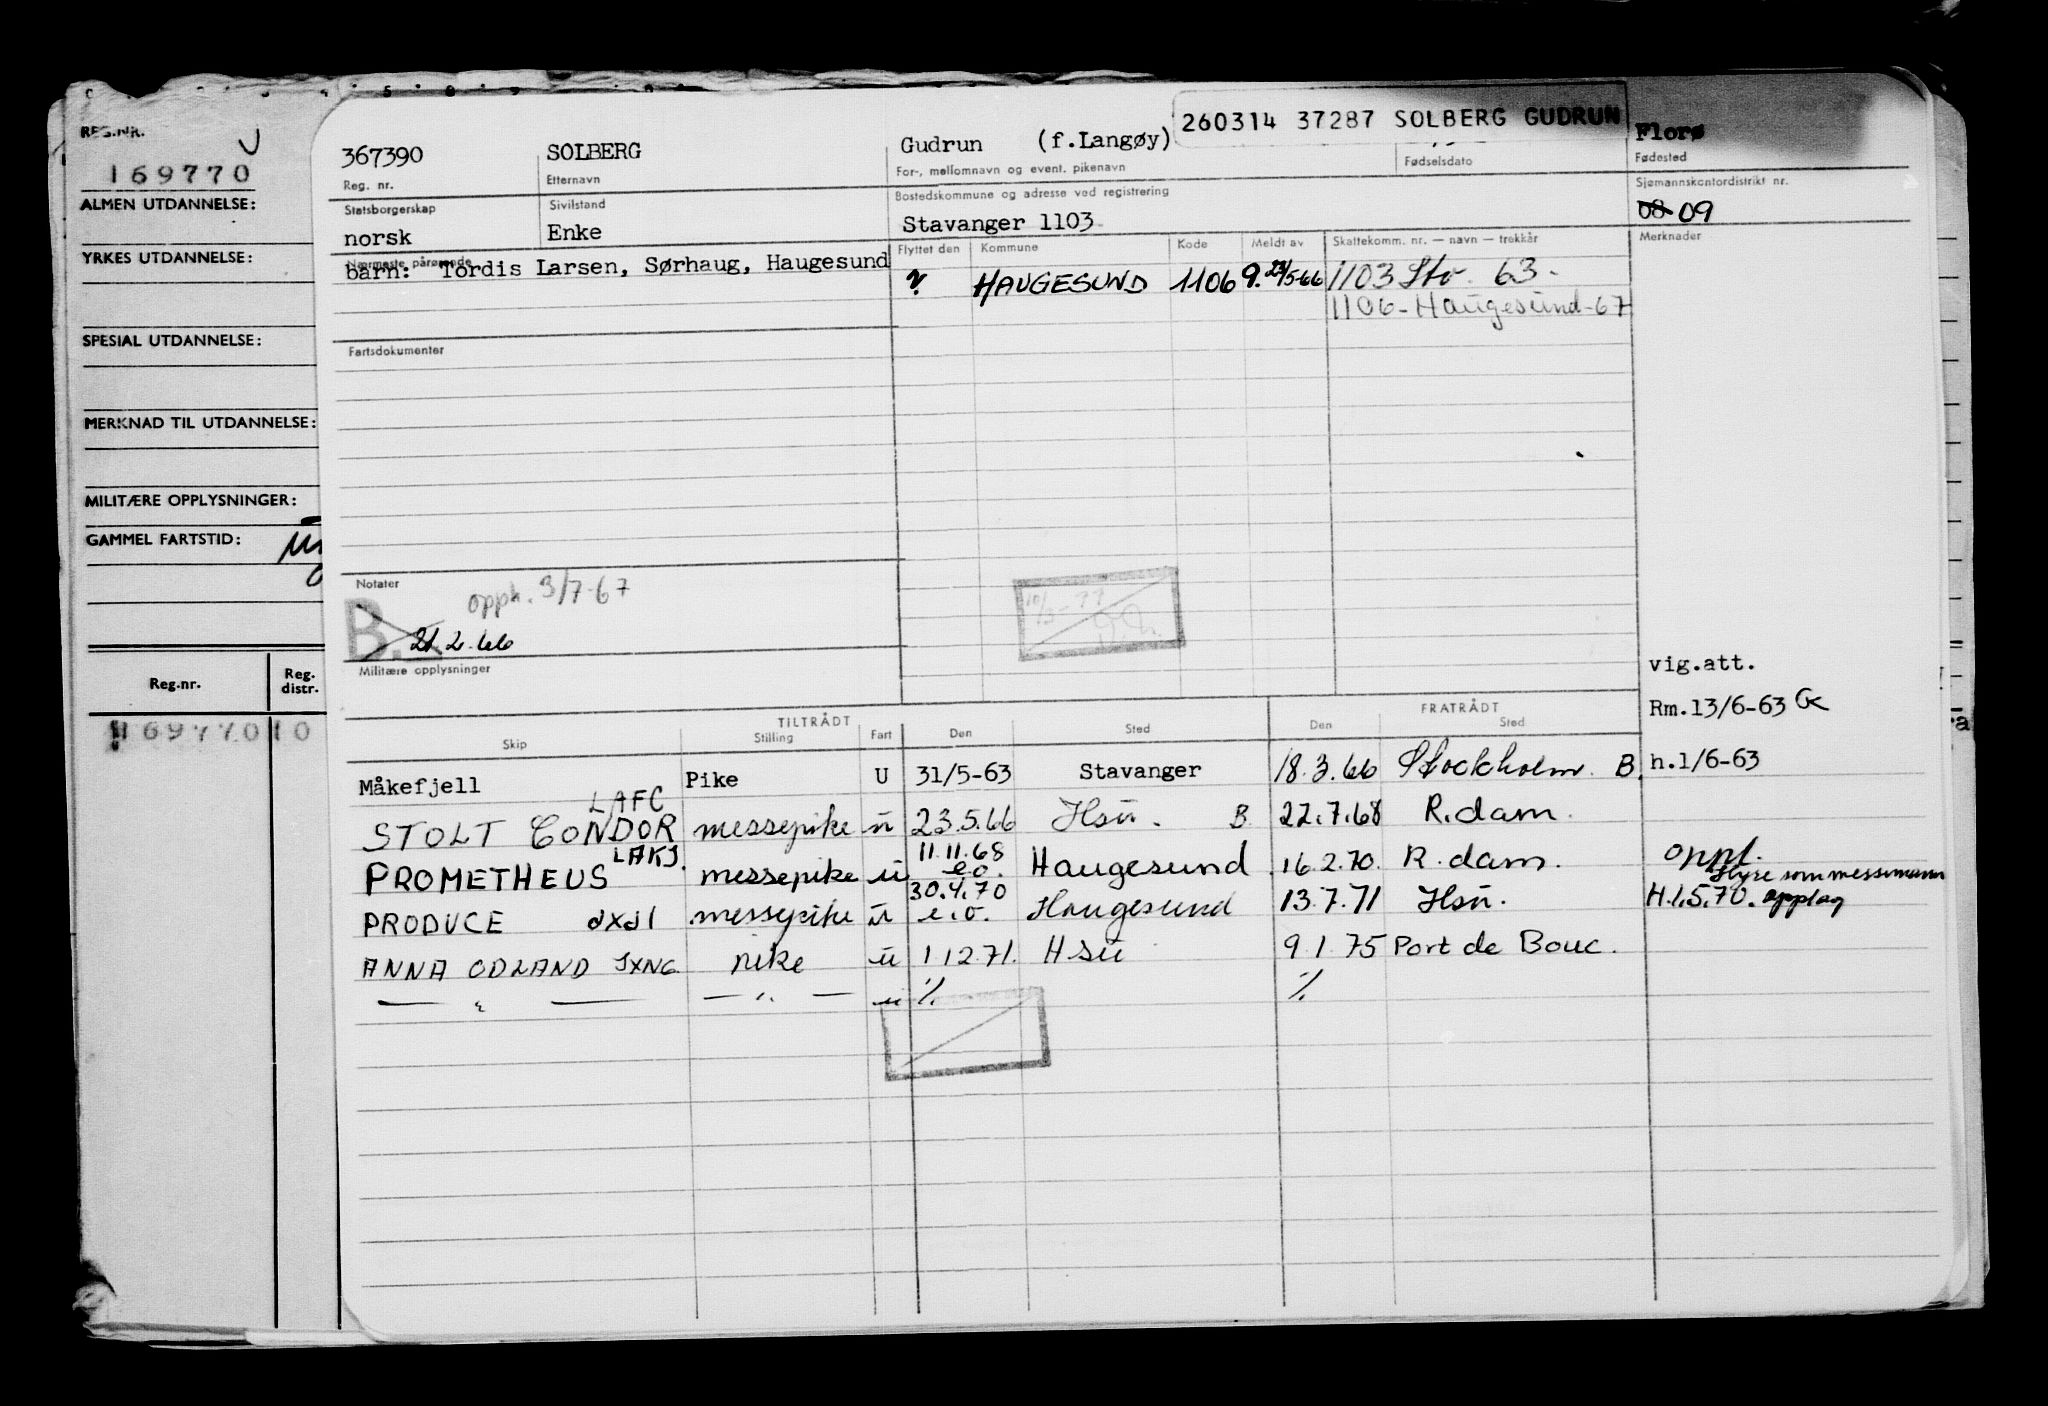 REG.NR.
169770
ALMEN UTDANNELSE:
YRKES UTDANNELSE:
SPESIAL UTDANNELSE:
MERKNAD TIL UTDANNELSE:
MILITÆRE OPPLYSNINGER:
GAMMEL FARTSTID:
Reg.nr. Reg. distr.
16977010
260314 37287 SOLBERG GUDRUN
367390 SOLBERG Gudrun (f.Langøy) Florø
Reg. nr. Etternavn For-, mellomnavn og event. pikenavn Fødselsdato Fødested
Statsborgerskap Sivilstand Bostedskommune og adresse ved registrering Sjømannskontordistrikt nr.
norsk Enke Stavanger 1103 08 09
Nærmeste pårørende Flyttet den Kommune Kode Meldt av Skattekomm. nr. — navn — trekkår Merknader
barn: Tordis Larsen, Sørhaug, Haugesund ? HAUGESUND 1106 9. 23/5-66 1103 Stv. 63.
1106-Haugesund-67
Fartsdokumenter
Notater
Opph. 3/7-67
B. 21.2.66
Militære opplysninger
vig.att.
Rm.13/6-63
TILTRÅDT FRATRÅDT
Skip Stilling Fart Den Sted Den Sted
Måkefjell Pike U 31/5-63 Stavanger 18.3.66 Stockholm. B. h.1/6-63
LAFC
STOLT CONDOR messepike u 23.5.66 Hsu. B 22.7.68 R.dam.
LAKJ
PROMETHEUS messepike u 11.11.68 e.o. Haugesund 16.2.70. R.dam. oppl.
Hyre som messemann
PRODUCE JXJI messepike u 30.4.70 e.o. Haugesund 13.7.71 Hsu. H.1.5.70. opplag
ANNA ODLAND JXNG pike u 1.12.71. Hsu 9.1.75 Port de Bouc.
— " — — " — u % %